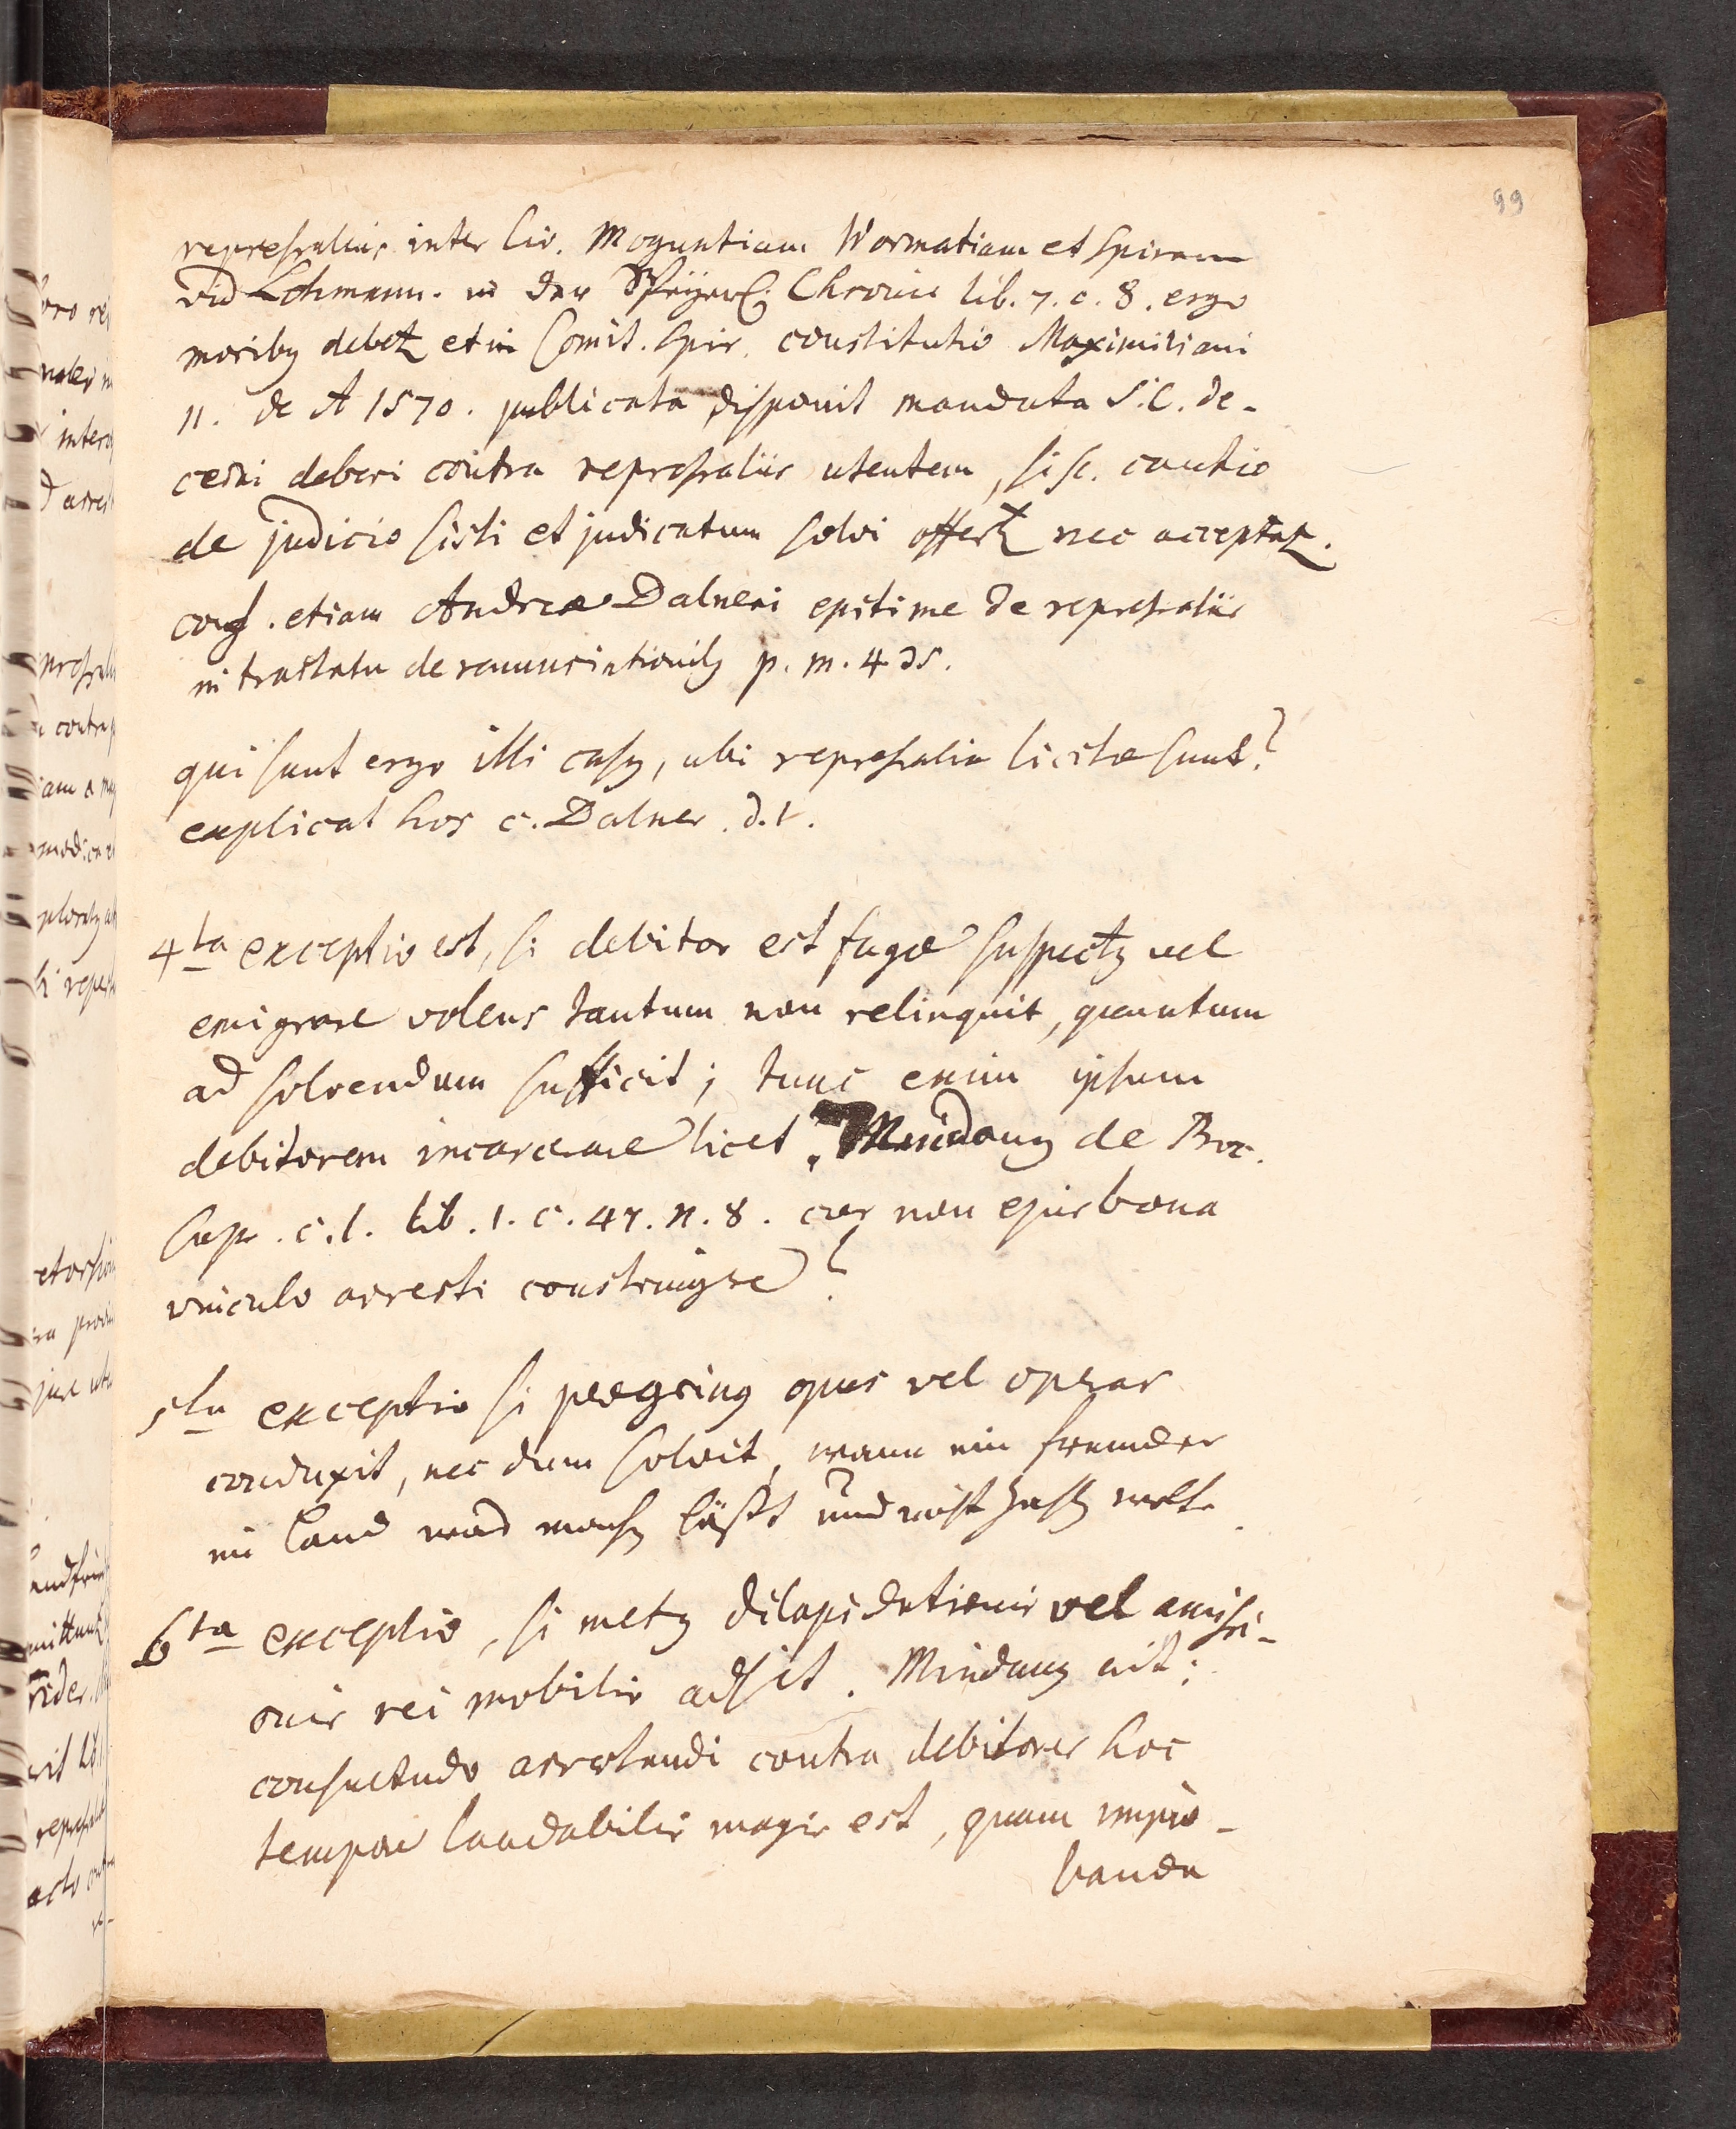 99
represalius inter Civ. Moguntiam Wormatiam et Spiram
vid Lehmann. in der Speyersch. Chronic lib. 7. c. 8. ergo
moribus et in Comit. Spir. constitutio Maximiliani
II. de A 1570. publicata disponit mandata S. C. de-
cerni deberi contra represaliis utentem, si sc. cautio
de judicio sisti et judicatum solvi offert nec acceptat.
conf. etiam Andreæ Dalneri epitime de represaliis
in tractatu de renunciationibus p. m. 435.
qui sunt ergo illi casus, ubi represaliæ licitæ sunt?
explicat hos c. Dalner. d. t.
4ta exceptio est, si debitor est fugæ suspectus vel
emigrare volens tantum non relinquit, quantum
ad solvendum sufficit; tunc enim ipsum
debitorem incarcerare licet. Mindanus de Proc.
c. l. lib. 1. c. 47. n. 8. cur non ejus bona
vinculo arresti constringere?
5ta exceptio si peregrinus opus vel operas
conduxit, nec dum solvit, wann ein frembder
im Land was machen läßt und nicht zahlen wolte.
6ta exceptio, si metus dilapidationis vel amissi-
onis rei mobilis adsit. Mindanus ait:
consuetudo arrestandi contra debitores hoc
tempore laudabilis magis est, quam impro-
banda